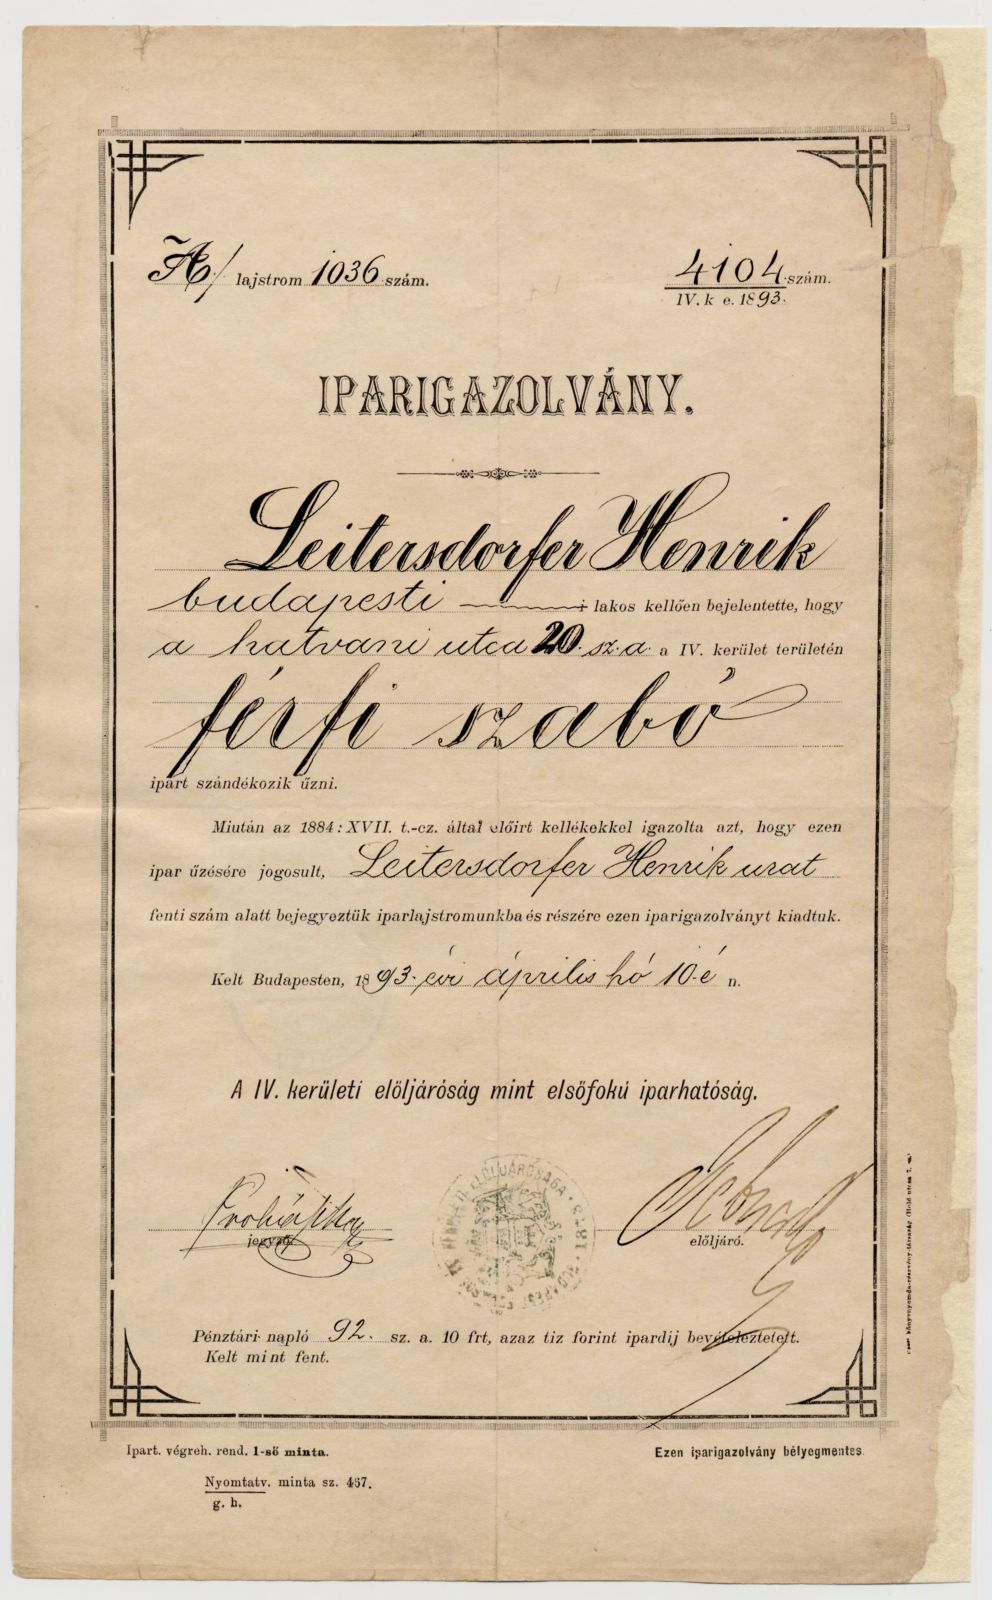 A/ lajstrom 1036 szám.
4104 szám.
IV. k e. 1893.
IPARIGAZOLVÁNY.
Leitersdorfer Henrik
budapesti i lakos kellően bejelentette, hogy
a hatvani utca 20. sz. a. a IV. kerület területén
férfi szabó
ipart szándékozik űzni.
Miután az 1884: XVII. t.-cz. által előirt kellékekkel igazolta azt, hogy ezen
ipar űzésére jogosult, Leitersdorfer Henrik urat
fenti szám alatt bejegyeztük iparlajstromunkba és részére ezen iparigazolványt kiadtuk.
Kelt Budapesten, 1893. évi április hó 10-é n.
A IV. kerületi elöljáróság mint elsőfokú iparhatóság.
jegyző.
elöljáró.
ELÖLJÁRÓSÁGA · 1873 · BUDAPEST
Pénztári napló 92. sz. a. 10 frt, azaz tiz forint ipardíj bevételeztetett.
Kelt mint fent.
Ipart. végreh. rend. 1-ső minta.
Ezen iparigazolvány bélyegmentes.
Nyomtatv. minta sz. 467.
g. h.
könyvnyomda-részvény-társaság